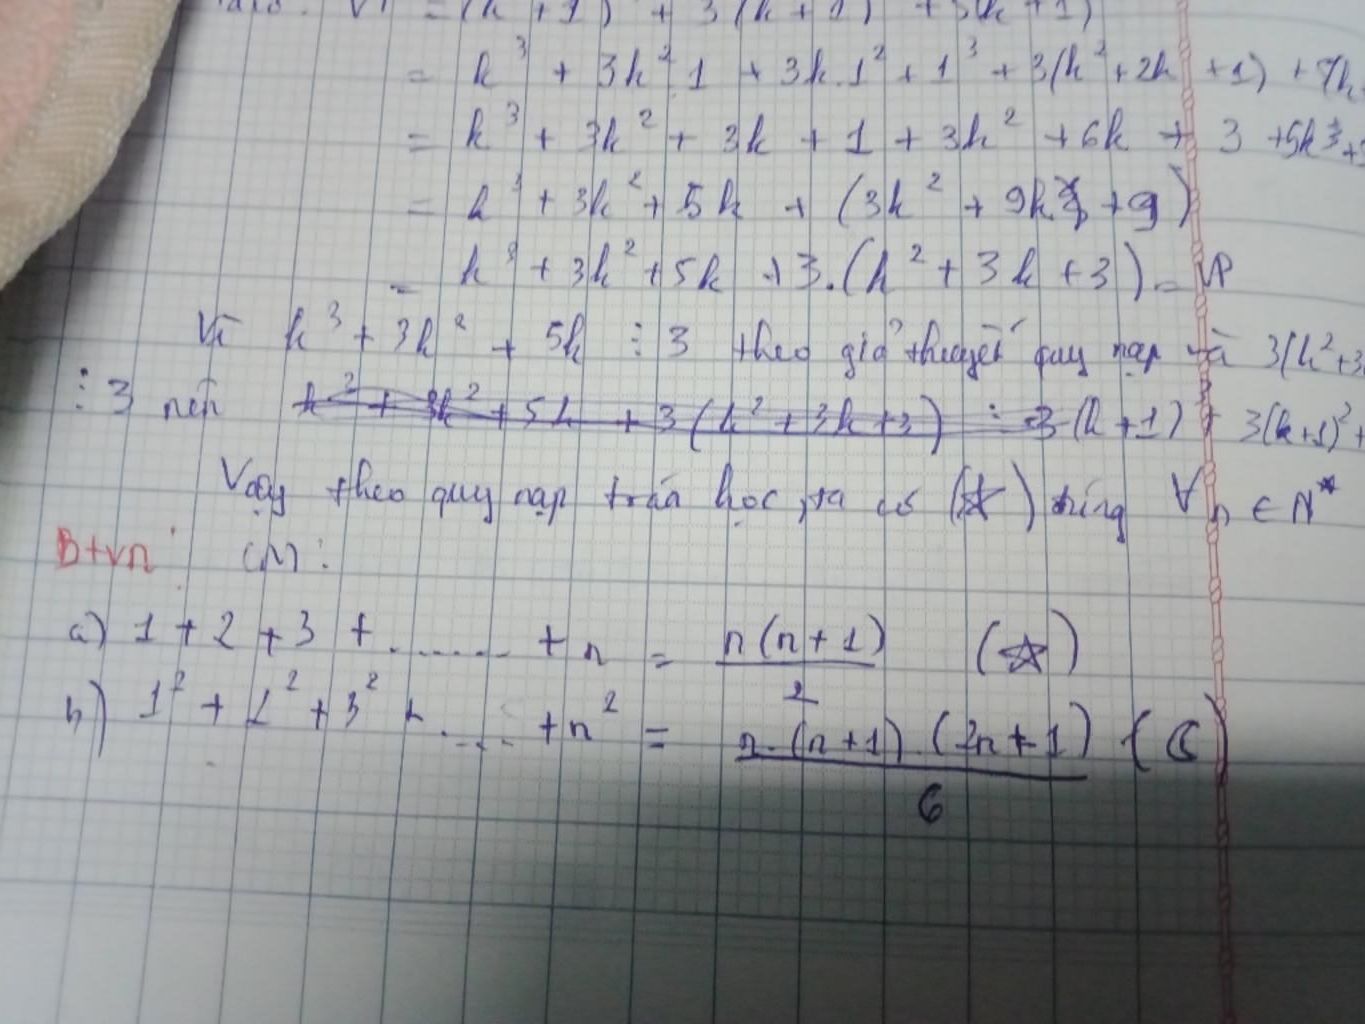 VT = (k + 1)³ + 3(k + 1)² + 5(k + 1)
= k³ + 3k².1 + 3k.1² + 1³ + 3(k² + 2k + 1) +
= k³ + 3k² + 3k + 1 + 3k² + 6k + 3 + 5k +
= k³ + 3k² + 5k + (3k² + 9k + 9)
= k³ + 3k² + 5k + 3.(k² + 3k + 3) = VP
Vì k³ + 3k² + 5k ⋮ 3 theo giả thuyết quy nạp và 3(k² + 3
⋮ 3 nên k² + 3k² + 5k + 3(k² + 3k + 3) ⋮ 3 (k + 1) + 3(k + 1)² +
Vậy theo quy nạp toán học, ta có (☆) đúng ∀n ∈ N*
Btvn: CM:
a) 1 + 2 + 3 + ....... + n = n(n + 1)/2 (☆)
b) 1² + 2² + 3² + ..... + n² = n.(n + 1).(2n + 1)/6